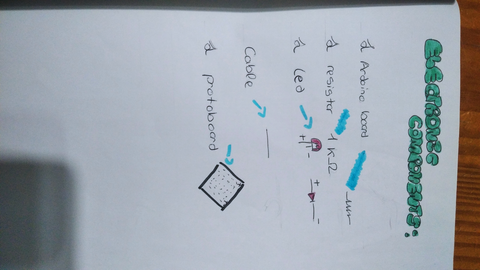 ELECTRONIC
COMPONENTS:
1 Arduino board
1 resistor 1KΩ
1 Led + - + -
Cable
1 protoboard